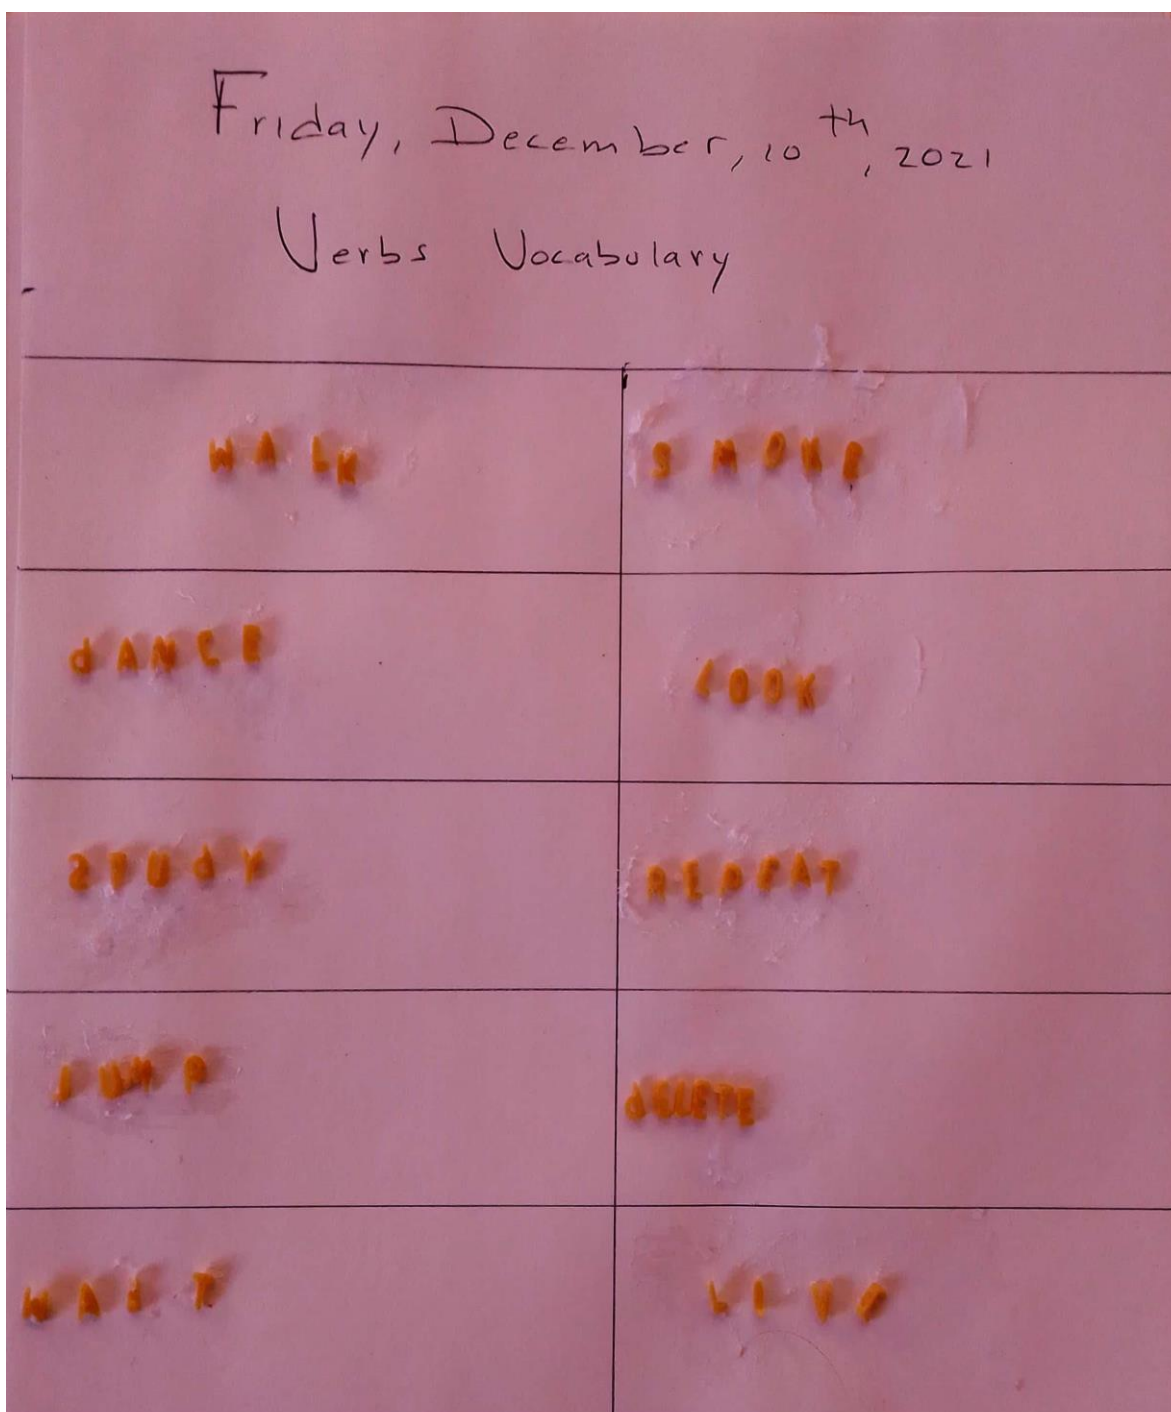 Friday, December, 10th, 2021
Verbs Vocabulary
WALK SMOKE
dANCE LOOK
STUdY REPEAT
JUMP dELETE
WAIT LIVE